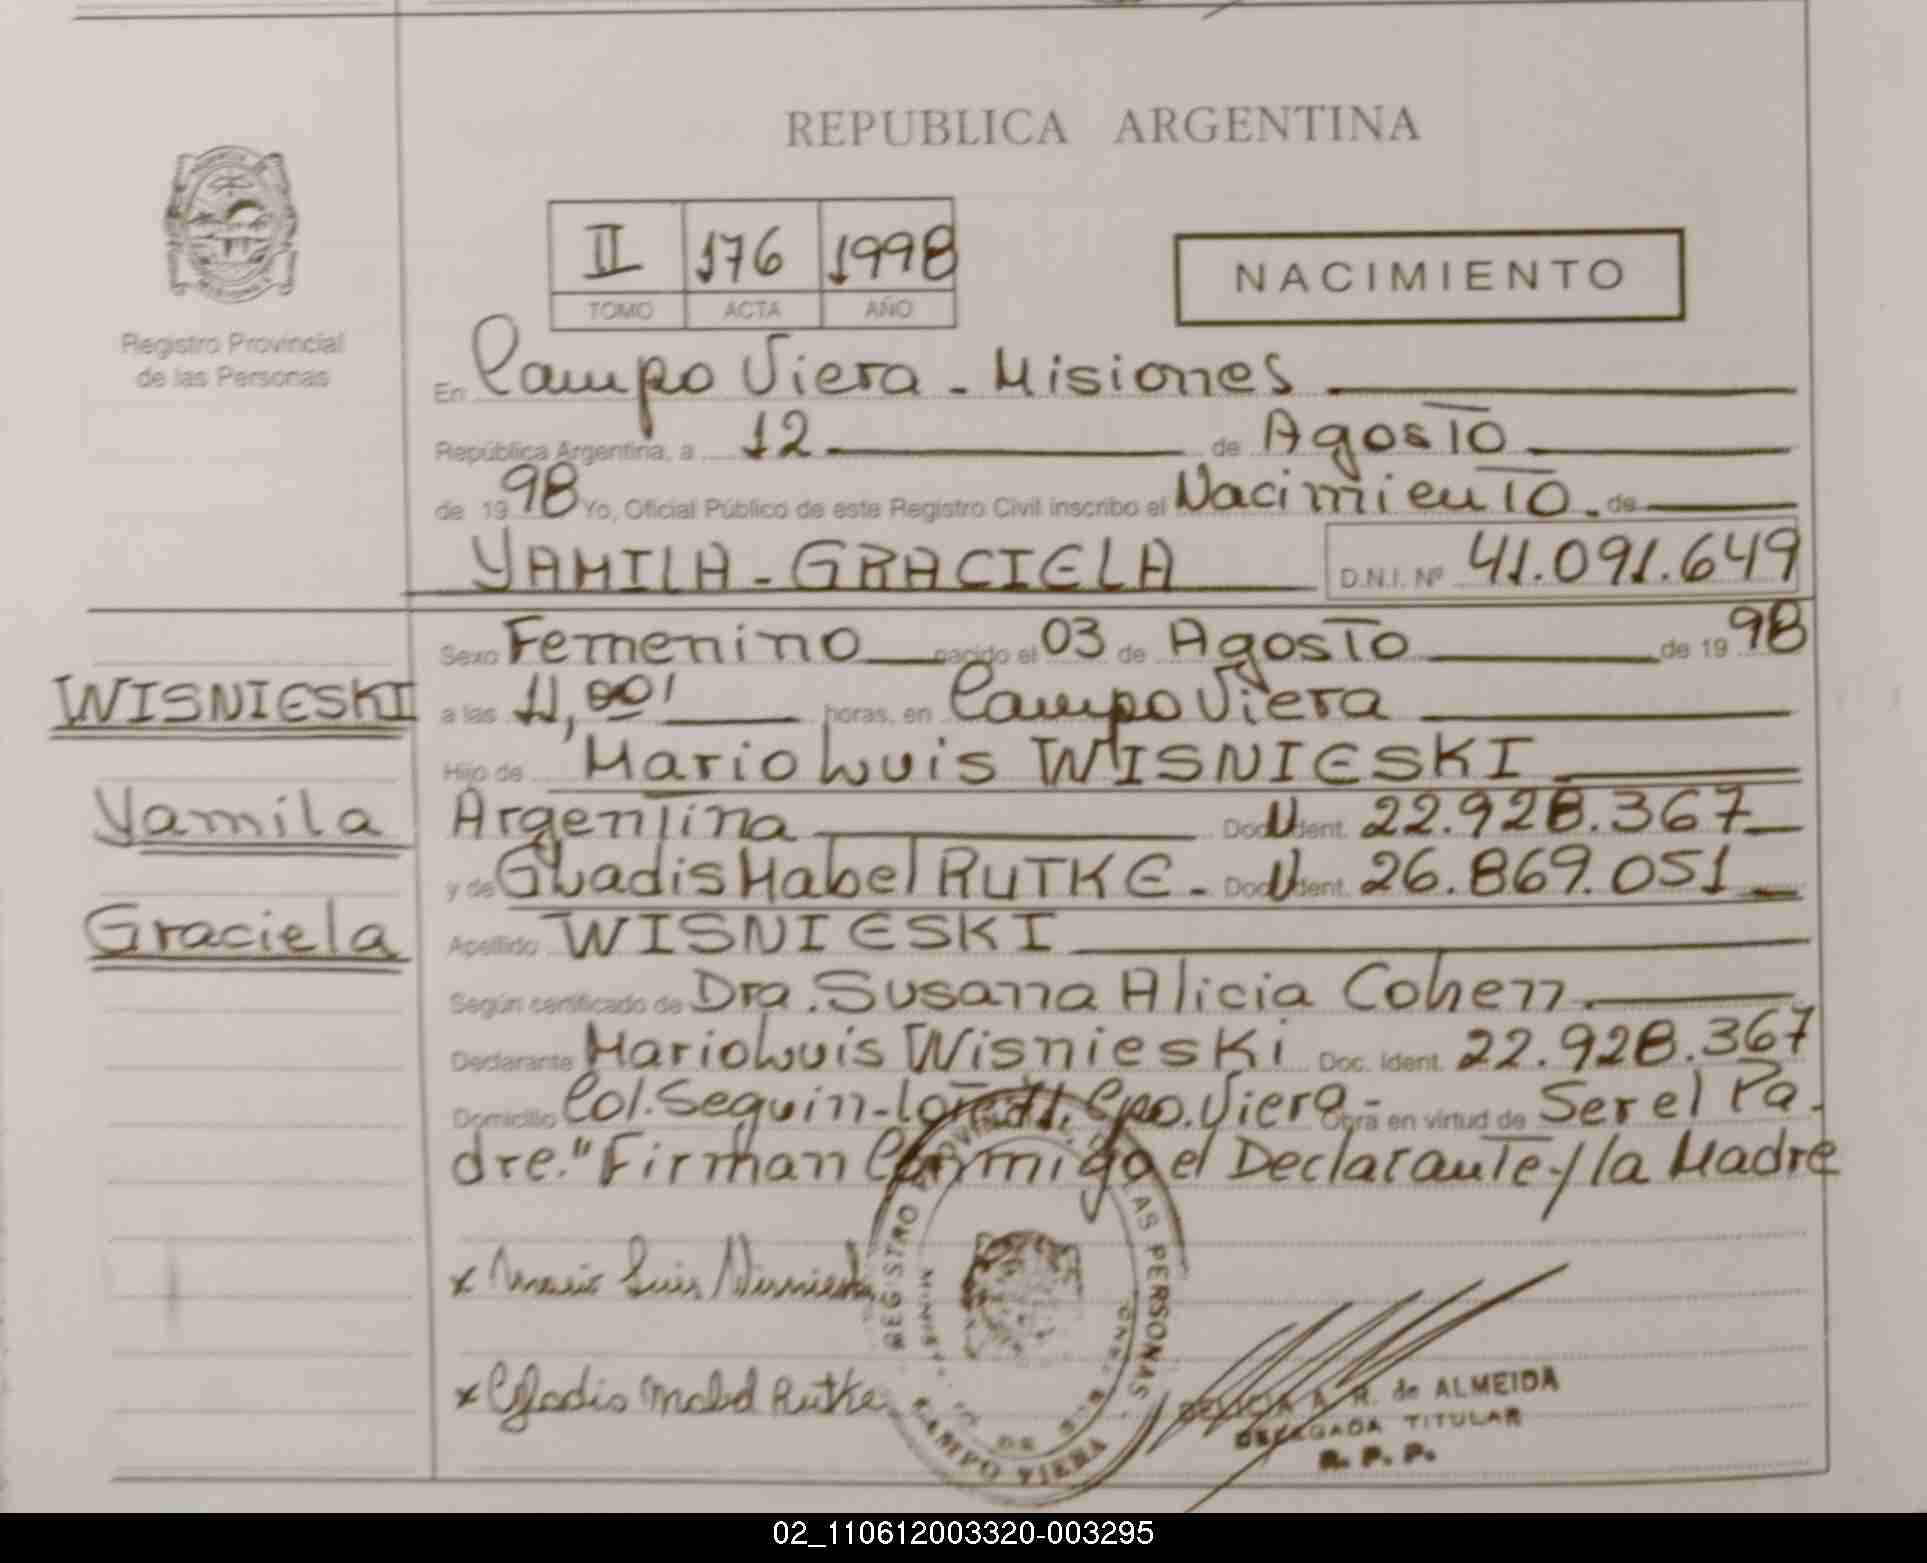 REPUBLICA ARGENTINA
II 176 1998
TOMO ACTA AÑO
NACIMIENTO
Registro Provincial
de las Personas
En Campo Viera - Misiones
República Argentina, a 12 de Agosto
de 1998 Yo, Oficial Público de este Registro Civil inscribo el Nacimiento. de
YAMILA - GRACIELA D.N.I. Nº 41.091.649
WISNIESKI
Yamila
Graciela
Sexo Femenino nacido el 03 de Agosto de 1998
a las 11,00' horas, en Campo Viera
Hijo de Mario Luis WISNIESKI
Argentina Doc. Ident. 22.928.367
y de Gladis Mabel RUTKE - Doc. Ident. 26.869.051
Apellido WISNIESKI
Según certificado de Dra. Susana Alicia Cohen.
Declarante Mario Luis Wisnieski Doc. Ident. 22.928.367
Domicilio Col. Seguin - Cpo. Viera - Obra en virtud de Ser el Pa-
dre." Firman Conmigo el Declarante y la Madre
x Mario Luis Wisnieski
x Gladis Mabel Rutke
REGISTRO PROVINCIAL DE LAS PERSONAS
CAMPO VIERA
A. R. de ALMEIDA
DELEGADA TITULAR
R. P. P.
02_110612003320-003295